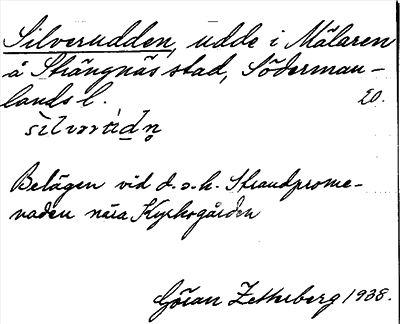 Silverudden, udde i Mälaren
å Strängnäs stad, Söderman-
lands l. 20.
Belägen vid d. s. k. Strandprome-
naden nära Kyrkogården
Göran Zetterberg 1938.